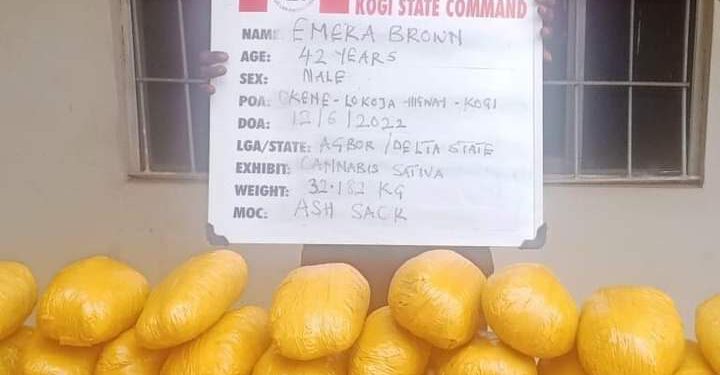 KOGI STATE COMMAND
NAME: EMEKA BROWN
AGE: 42 YEARS
SEX: MALE
POA: OKENE-LOKOJA HIGWAY-KOGI
DOA: 12/6/2022
LGA/STATE: AGBOR/DELTA STATE
EXHIBIT: CANNABIS SATIVA
WEIGHT: 32.182 KG
MOC: ASH SACK